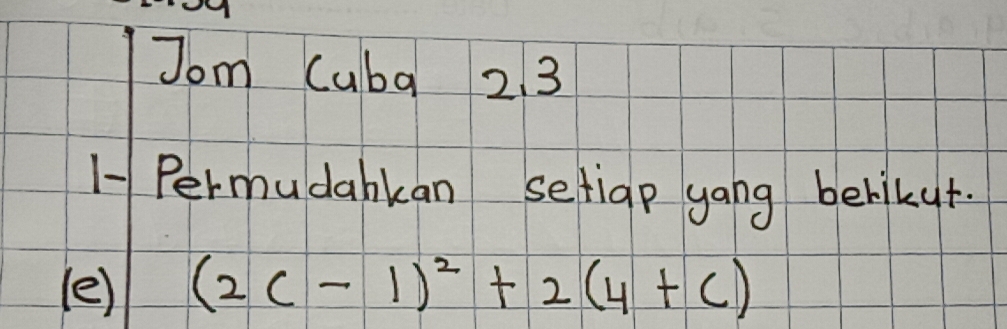 Jom Cuba 2.3
1- Permudahkan setiap yang berikut.
(e) (2c - 1)² + 2(4 + c)